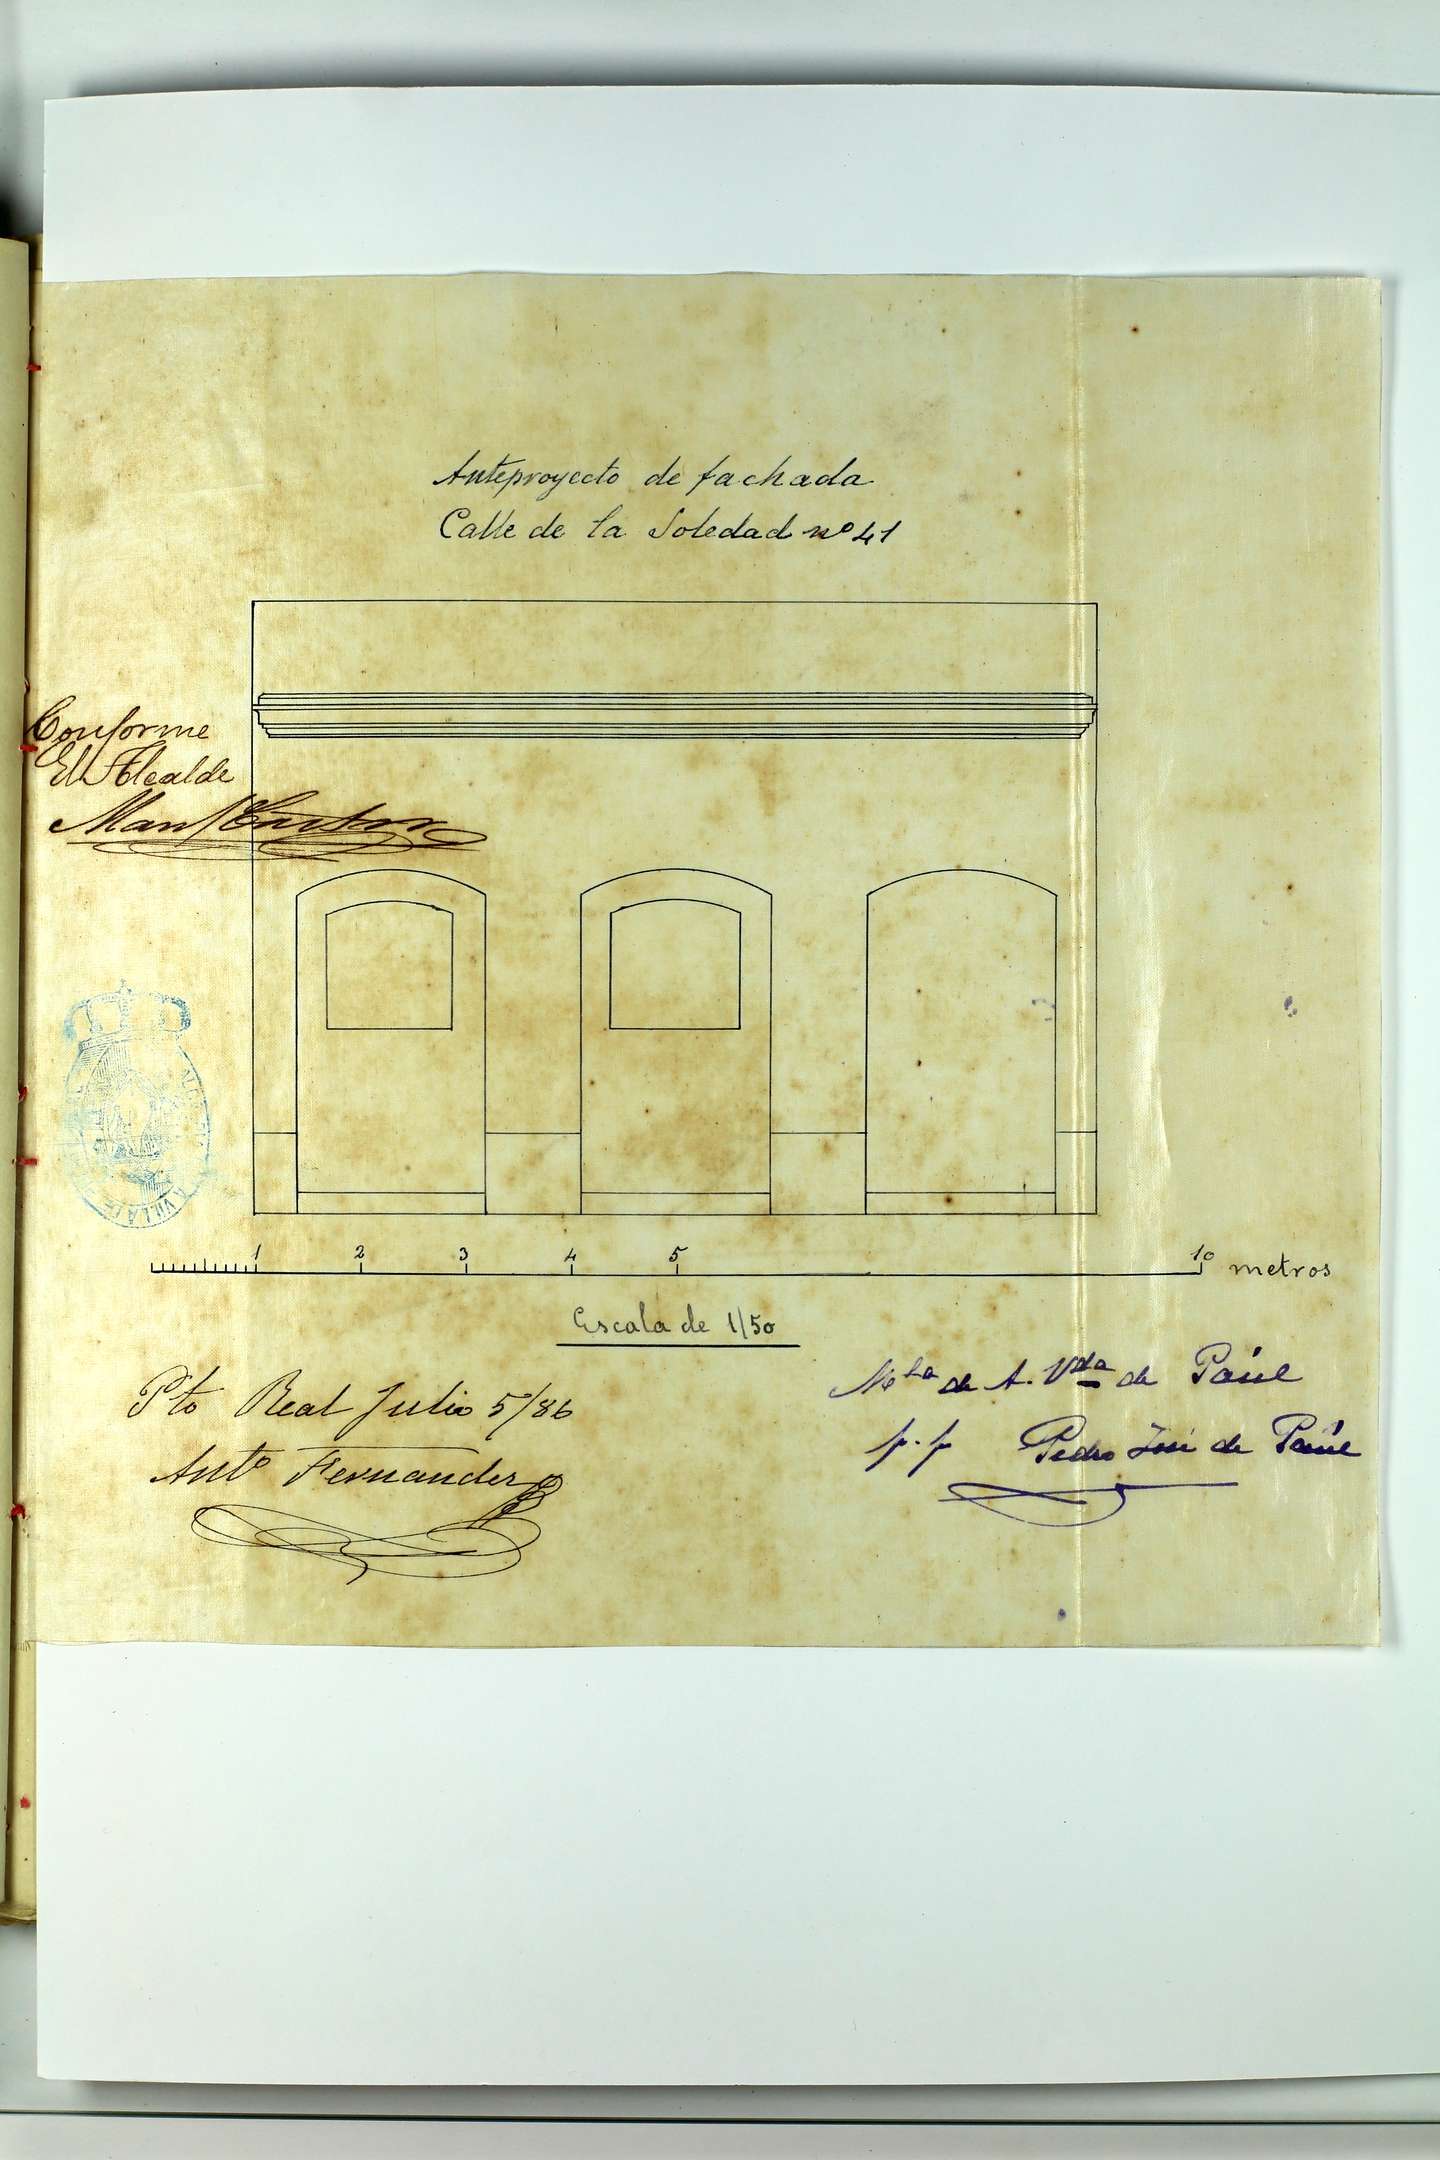 Anteproyecto de fachada
Calle de la Soledad nº 41
Conforme
El Alcalde
1 2 3 4 5 10 metros
Escala de 1/50
Pto Real Julio 5/86
Antº Fernandez
Mla de A. Vda de Paúl
p.p Pedro José de Paúl
VILLA DE